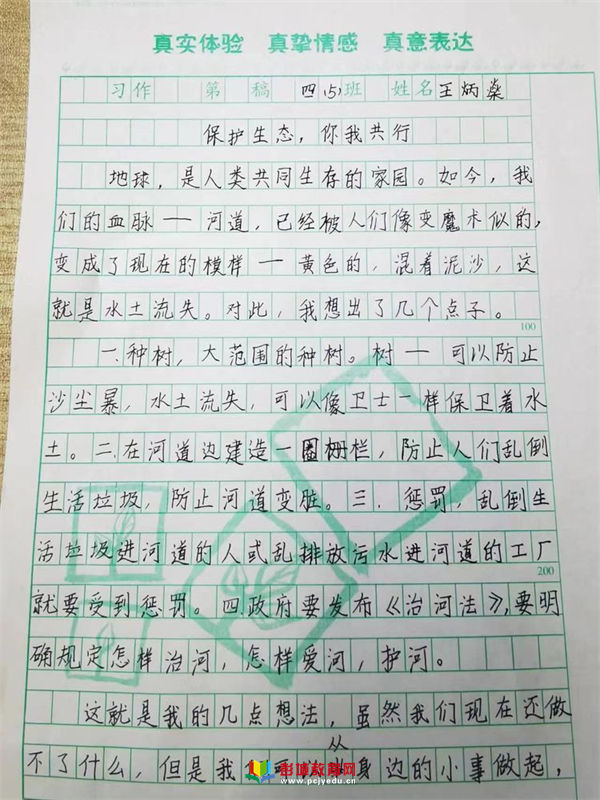 真实体验 真挚情感 真意表达
习作 第 稿 四(5)班 姓名王炳燊
保护生态，你我共行
地球，是人类共同生存的家园。如今，我
们的血脉——河道，已经被人们像变魔术似的，
变成了现在的模样——黄色的，混着泥沙，这
就是水土流失。对此，我想出了几个点子。
100
一.种树，大范围的种树。树——可以防止
沙尘暴，水土流失，可以像卫士一样保卫着水
土。二.在河道边建造一圈栅栏，防止人们乱倒
生活垃圾，防止河道变脏。三.惩罚，乱倒生
活垃圾进河道的人或乱排放污水进河道的工厂
200
就要受到惩罚。四.政府要发布《治河法》，要明
确规定怎样治河，怎样爱河，护河。
这就是我的几点想法，虽然我们现在还做
不了什么，但是我 从 身边的小事做起，
教育网
www.pcjyedu.cn